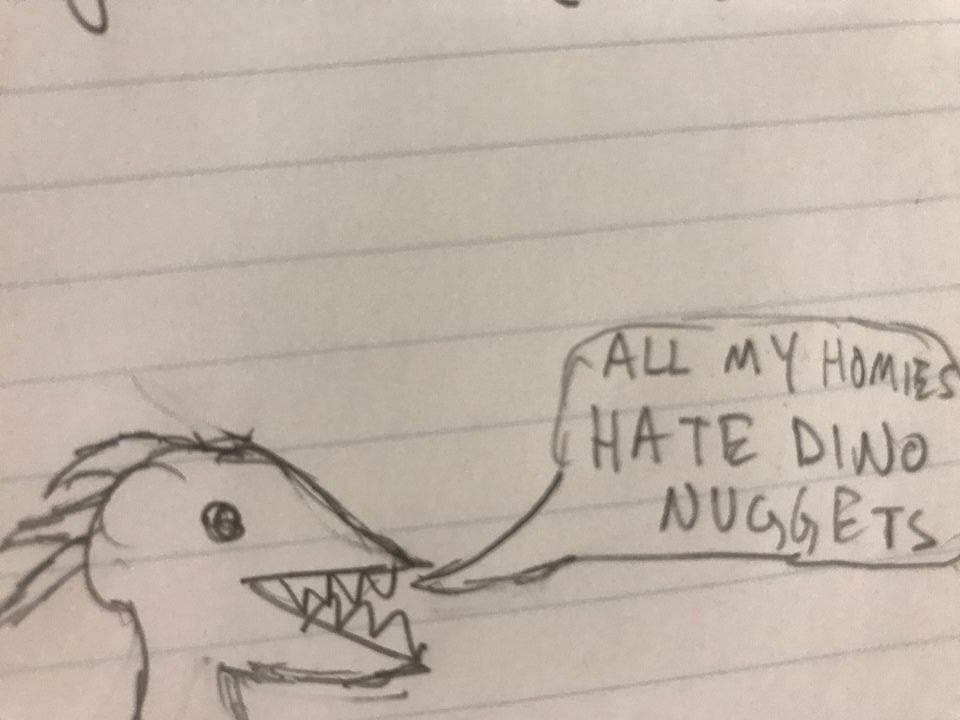 ALL MY HOMIES
HATE DINO
NUGGETS